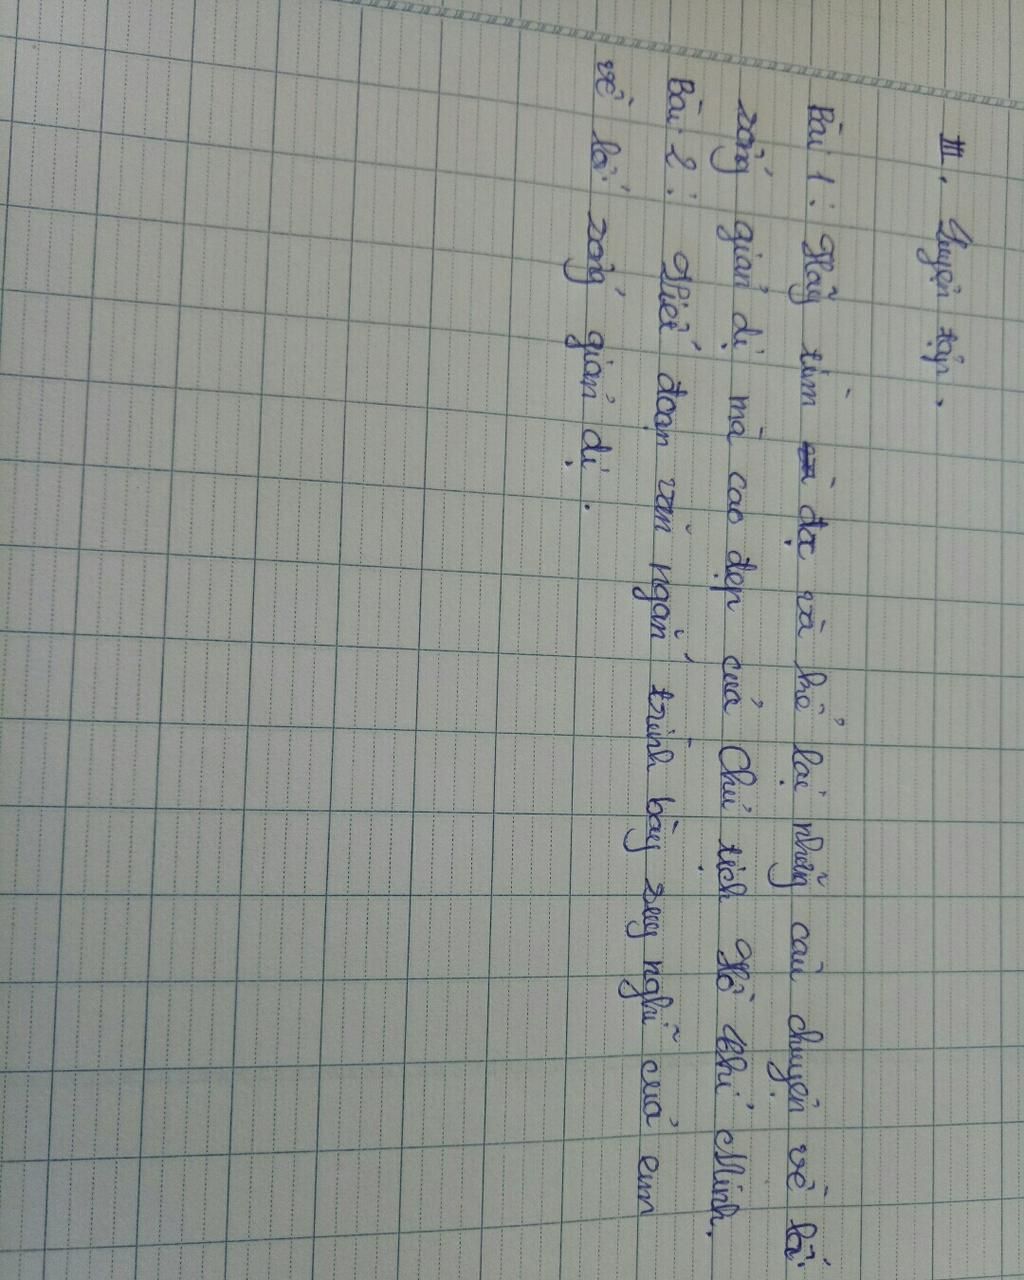 III. Luyện tập.
Bài 1: Hãy tìm đọc và kể lại những câu chuyện về lối
sống giản dị mà cao đẹp của Chủ tịch Hồ Chí Minh.
Bài 2: Viết đoạn văn ngắn trình bày suy nghĩ của em
về lối sống giản dị.